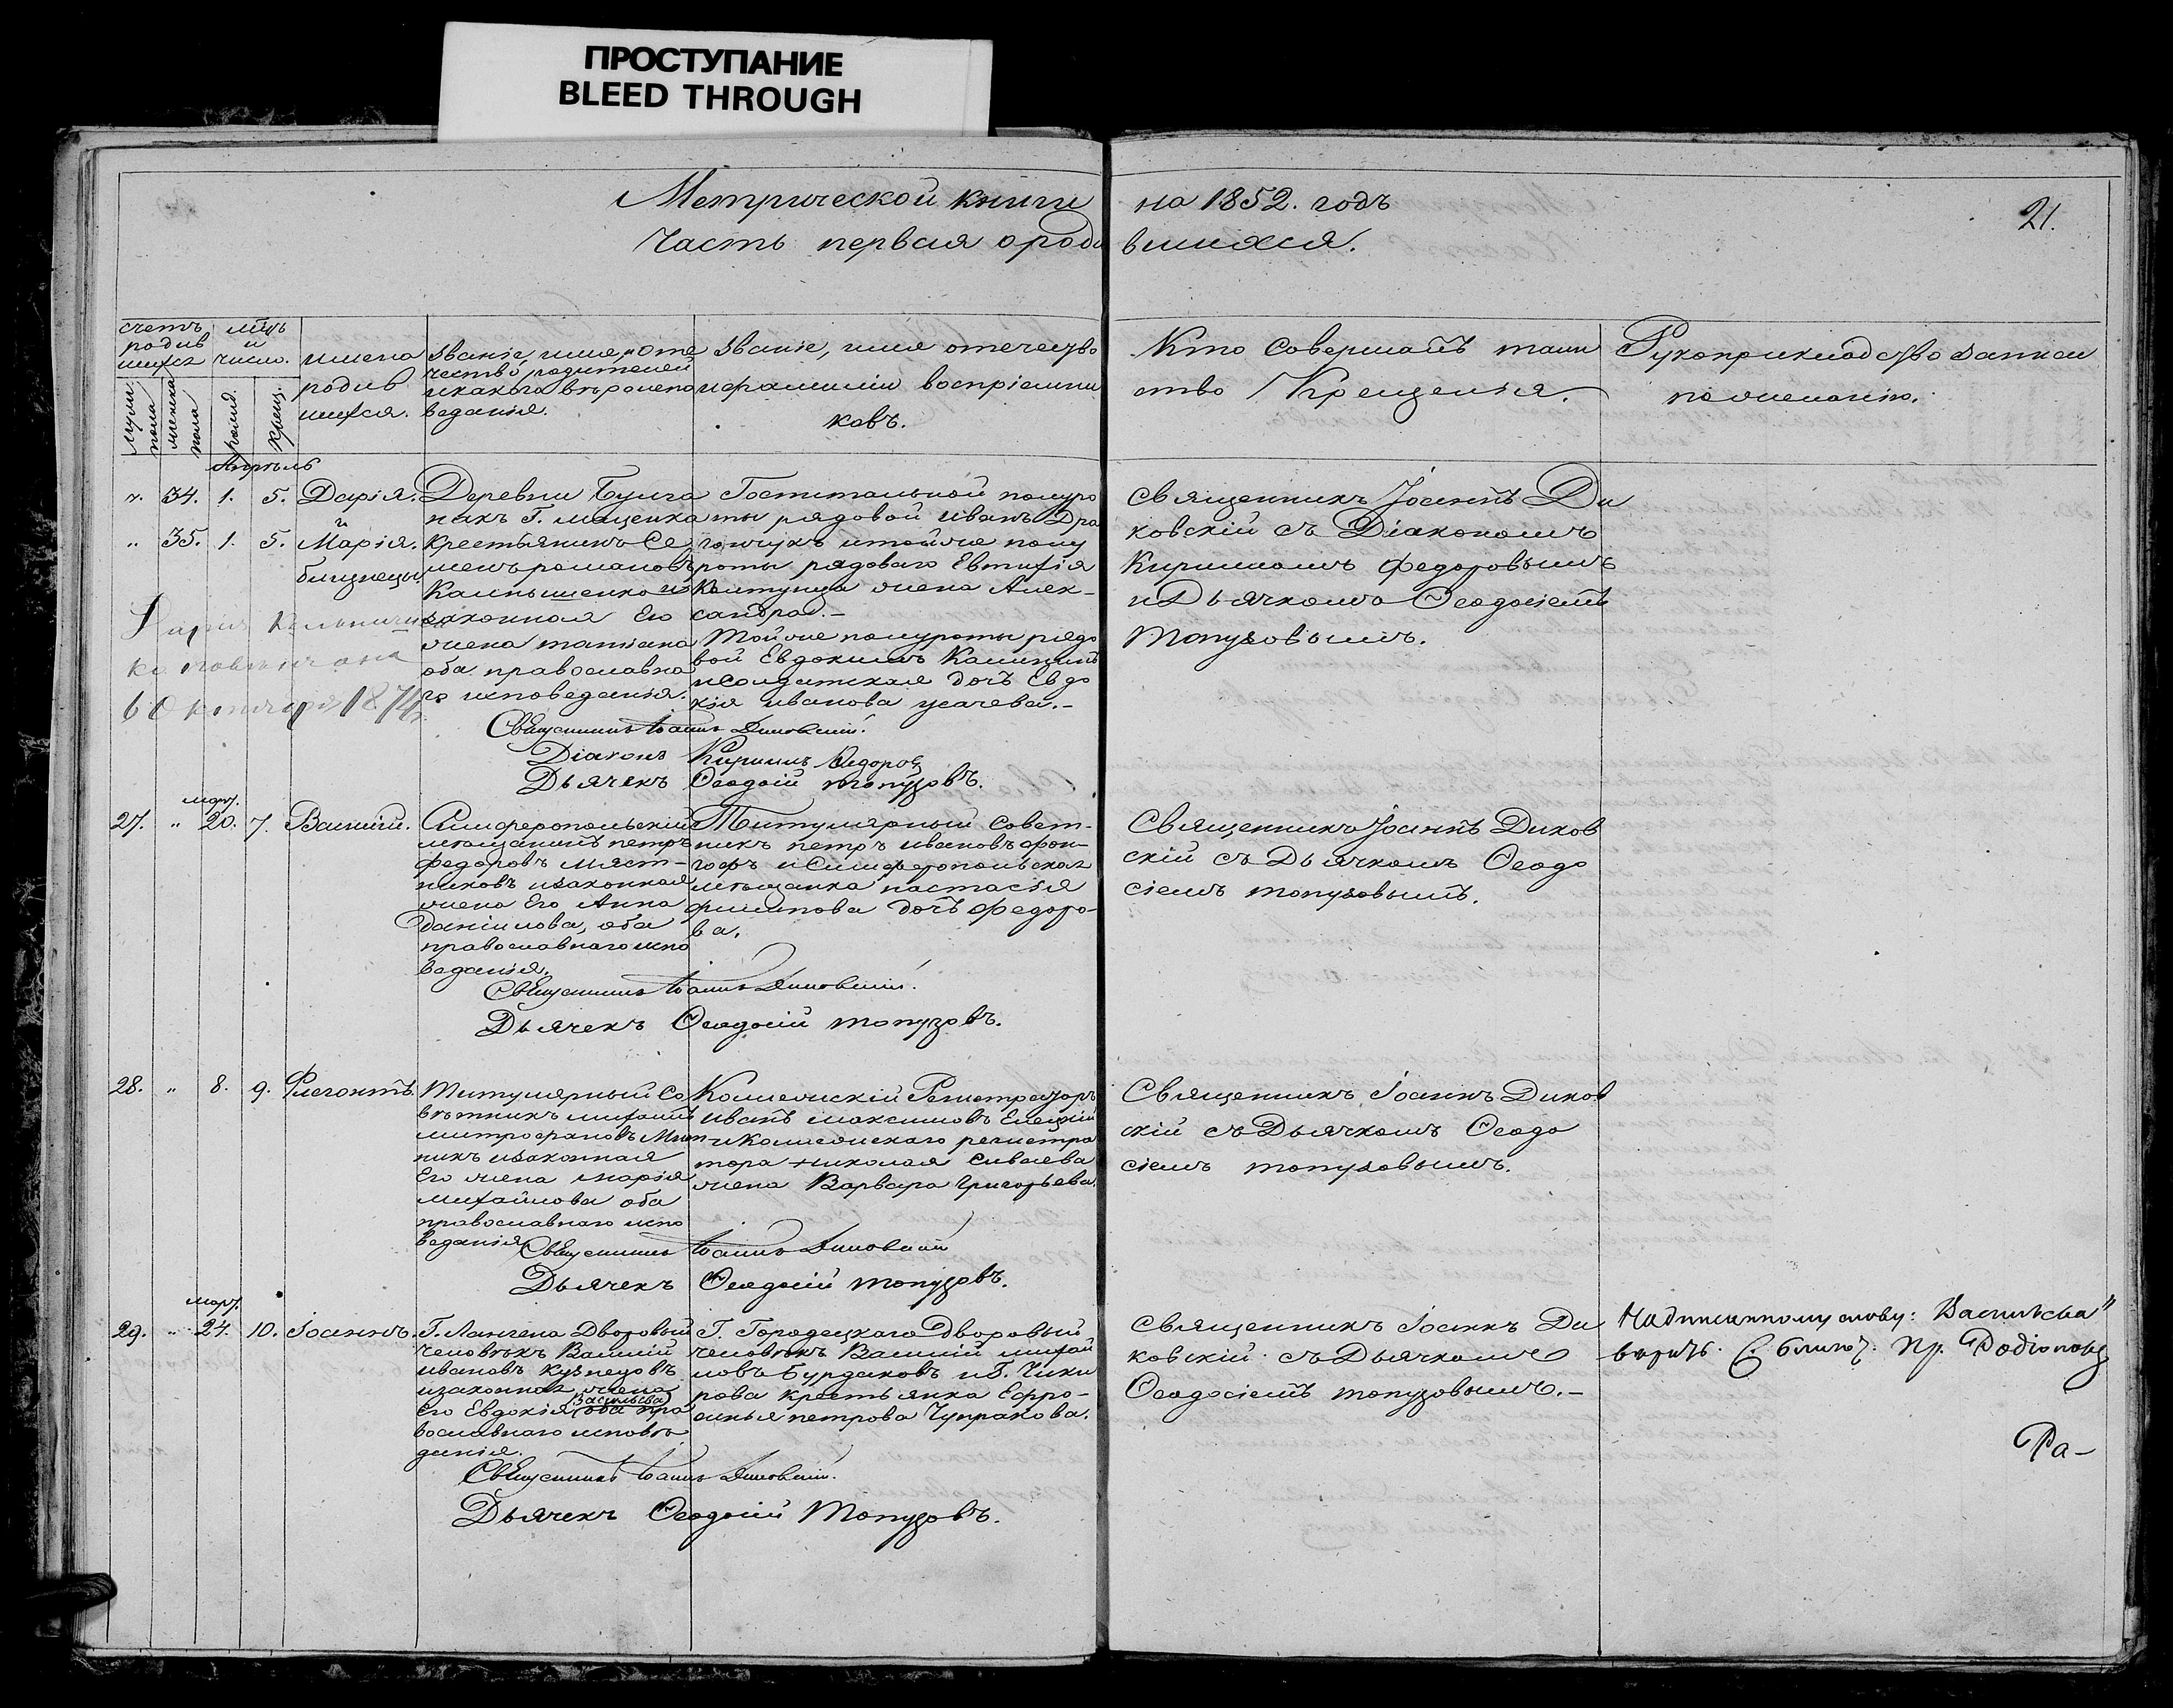 ПРОСТУПАНИЕ
BLEED THROUGH
Метрической книги на 1852. годъ
21.
Часть первая о роди вшихся.
счетъ родив шихся
мцъ и число.
имена родив шихся.
званіе, имя, оте
чество родителей
и какого вѣроиспо
веданія.
званіе, имя отечество
и фамилія воспріемни
ковъ.
Кто совершалъ таин
ство Крещенія.
Рукоприкладство записи
по желанію.
мужеска пола
женска пола
рожд.
крещ.
Апрѣль
". 34. 1. 5. Дарія.
и
". 35. 1. 5. Марія.
близнецы
Деревни Булга
накъ Г. 
крестьянинъ Се
менъ романовъ
законная его
жена татіана
оба православна
го исповеданія.
Госпитальной полуро
ты рядовой иванъ Дра
гончукъ и тойже полу
роты рядоваго Евтифія
жена Алек-
сандра.-
Тойже полуроты рядо
вой Евдокимъ Калининъ
и солдатская дочь Евдо
кія иванова усачева.-
Священникъ Іоаннъ Ди
ковскій съ Діакономъ
Кирилломъ федоровымъ
и Дьячкомъ Ѳеодосіемъ
топузовымъ.
6 Октября 1874
Священникъ Іоаннъ Диковскій.
Діаконъ Кириллъ Ѳедоровъ
Дьячекъ Ѳеодосій топузовъ.
март.
27. " 20. 7. Василій.
Симферопольскій
мѣщанинъ петръ
федоровъ мяст-
никовъ и законная
жена Его Анна
Даниилова, оба
православнаго испо
веданія.
Титулярный Совет-
никъ петръ ивановъ фон-
гофъ и Симферопольская
мѣщанка настасія
филипова дочь федоро-
ва.
Священникъ Іоаннъ Диков
скій съ Дьячкомъ Ѳеодо
сіемъ топузовымъ.
Священникъ Іоаннъ Диковскій.
Дьячекъ Ѳеодосій топузовъ.
28. " 8. 9. Флегонтъ.
Титулярный Со
вѣтникъ михаилъ
митрофановъ
никъ и законная
Его жена марія
михайлова оба
православнаго испо
веданія
Коллежскій Регистраторъ
иванъ максимовъ Елецкій
и Коллежскаго регистра
тора николая сиваева
жена Варвара григорьева.
Священникъ Іоаннъ Диков
скій съ Дьячкомъ Ѳеодо
сіемъ топузовымъ.
Священникъ Іоаннъ Диковскій
Дьячекъ Ѳеодосій топузовъ.
март.
29. " 24. 10. Іоаннъ.
Г. Лангена Дворовый
человѣкъ Василій
ивановъ кузнецовъ
и законная жена
Васильева
Его Евдокія оба пра
вославнаго исповѣ
данія.
Г. Городецкаго Дворовый
человѣкъ Василій михай
ловъ Бурдаковъ и Г. Чики
рова крестьянка Ефро-
синья петрова Чупракова.
Священникъ Іоаннъ Ди
ковскій съ Дьячкомъ
Ѳеодосіемъ топузовымъ.-
Надписанному слову: Васильева"
вѣрить. С. благоч. Пр. Родіоновъ
Ра-
Священникъ Іоаннъ Диковскій.
Дьячекъ Ѳеодосій Топузовъ.